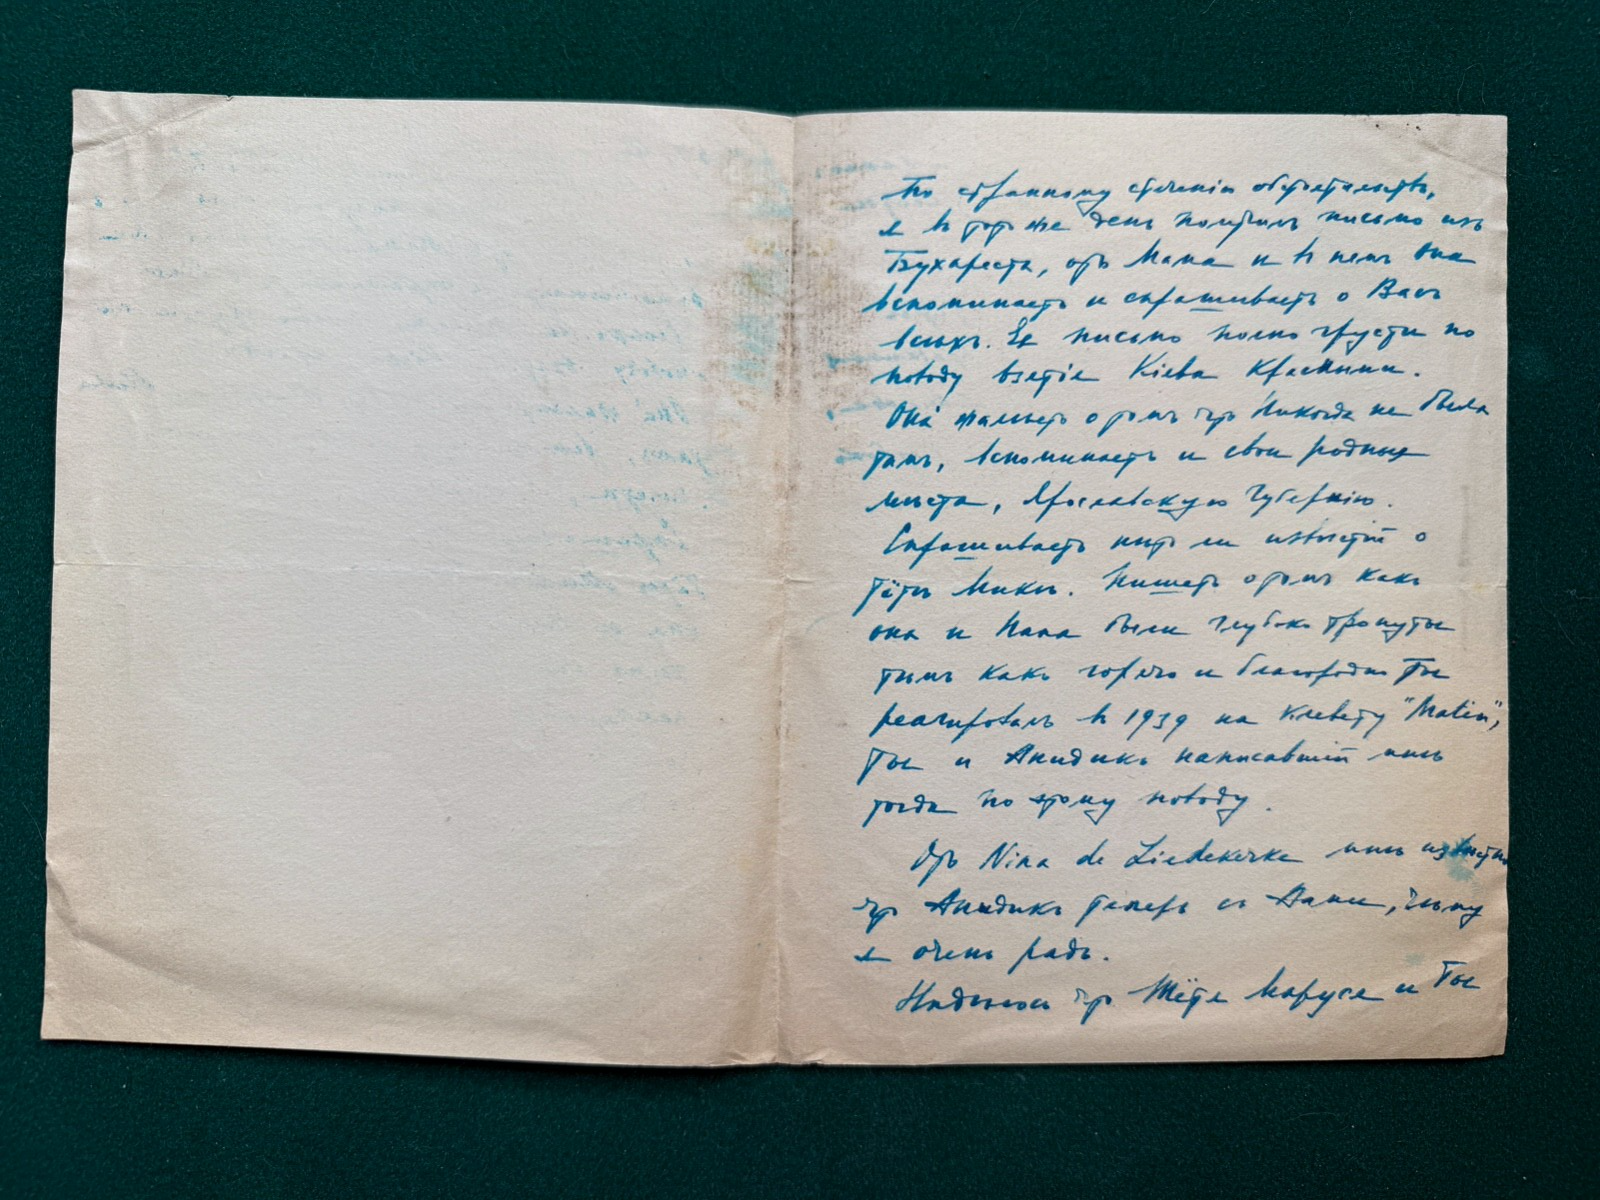 По странному стеченію обстоятельствъ,
я въ тотъ же день получилъ письмо изъ
Бухареста, отъ Мама и въ немъ она
вспоминаетъ и спрашиваетъ о Васъ
всѣхъ. Ея письмо полно грусти по
поводу взятія Кіева Красными.
Она жалѣетъ о томъ что никогда не была
тамъ, вспоминаетъ и свои родныя
мѣста, Ярославскую Губернію.
Спрашиваетъ нѣтъ ли извѣстій о
тётѣ Микѣ. Пишетъ о томъ какъ
она и Папа были глубоко тронуты
тѣмъ какъ горячо и благородно Ты
реагировалъ въ 1939 на клевету "Matin",
Ты и Анидикъ написавшій мнѣ
тогда по этому поводу.
Отъ Nina de Liedekerke мнѣ извѣстно
что Анидикъ теперь съ Вами, чему
я очень радъ.
Надѣюсь что Тётя Маруся и Ты